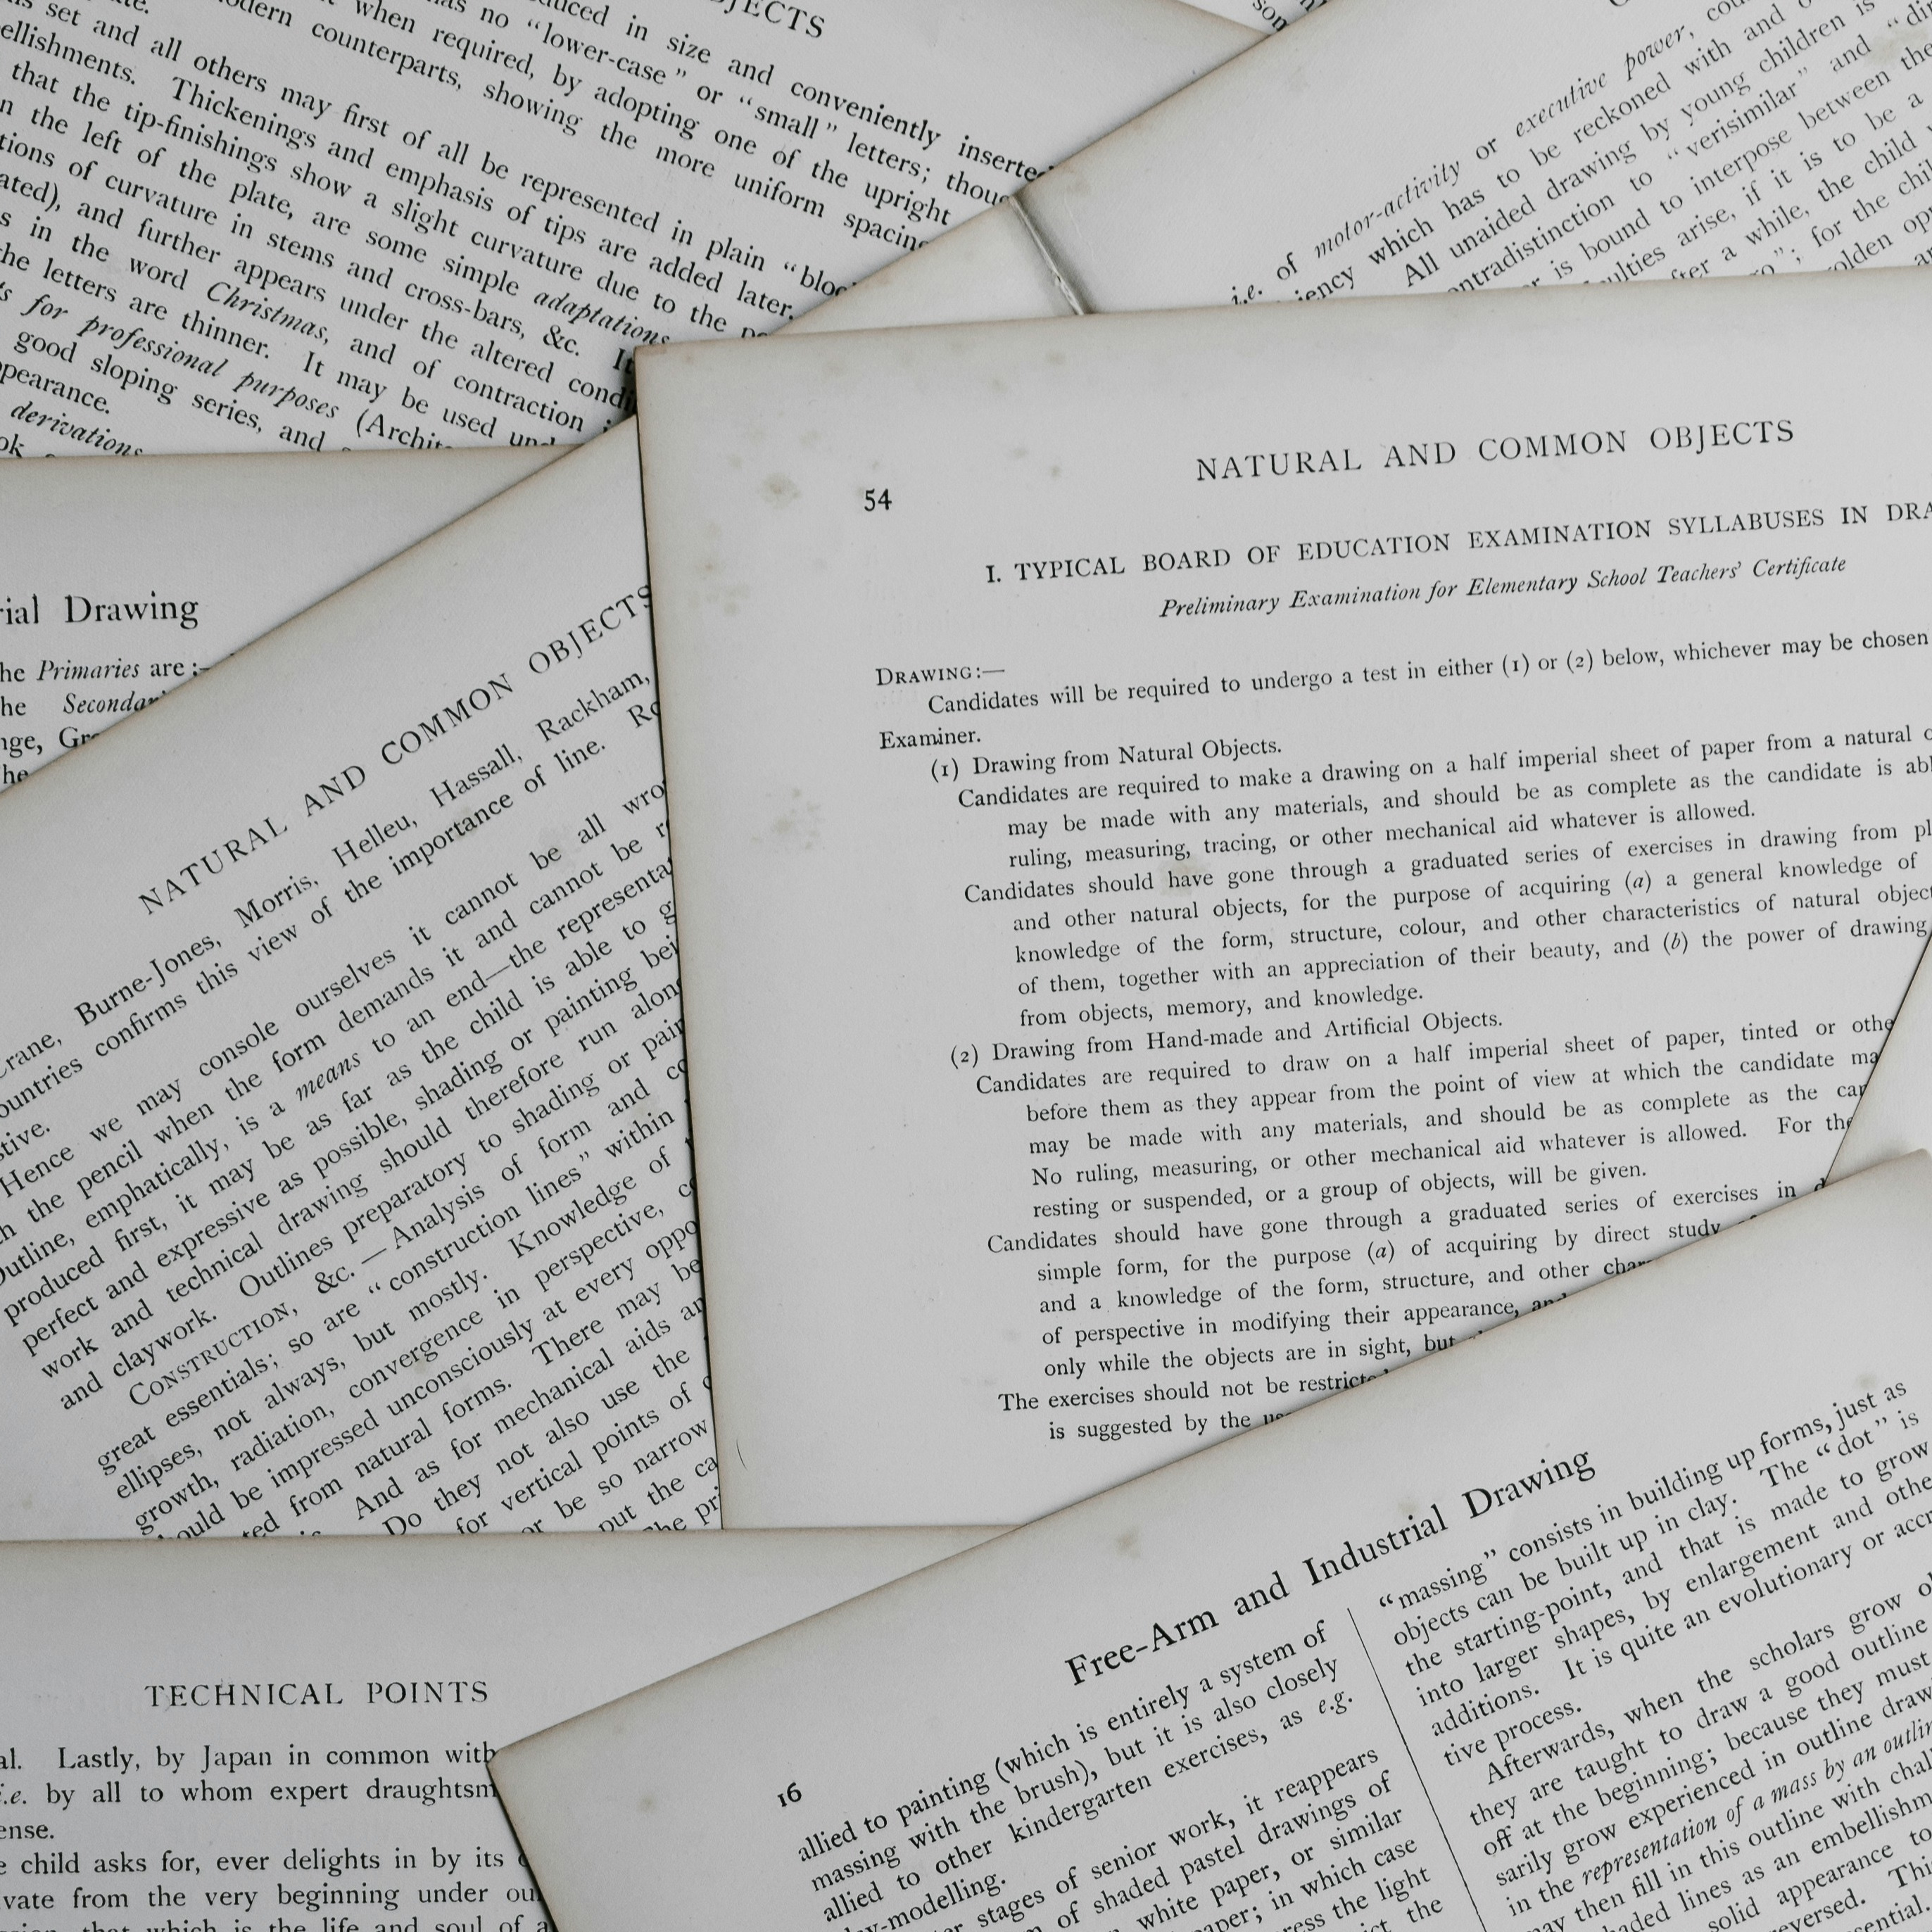 OBJECTS
duced in size and conveniently inserted
has no “lower-case” or “small” letters; though
when required, by adopting one of the upright
modern counterparts, showing the more uniform spacing
set and all others may first of all be represented in plain “block
Thickenings and emphasis of tips are added later.
that the tip-finishings show a slight curvature due to the
the left of the plate, are some simple adaptations
of curvature in stems and cross-bars, &c. It
and further appears under the altered condi
in the word Christmas, and of contraction
the letters are thinner. It may be used
for professional purposes (Archite
good sloping series, and
appearance.
derivations
i.e. of motor-activity or executive power,
which has to be reckoned with and
All unaided drawing by young children is
contradistinction to “verisimilar” and
is bound to interpose between the
arise, if it is to be a
after a while, the child
; for the
rial Drawing
The Primaries are:—
The
NATURAL AND COMMON OBJECTS
Crane, Burne-Jones, Morris, Helleu, Hassall, Rackham,
countries confirms this view of the importance of line.
Hence we may console ourselves it cannot be all wro
the pencil when the form demands it and cannot be
Outline, emphatically, is a means to an end—the representa
produced first, it may be as far as the child is able to
perfect and expressive as possible, shading or painting bei
work and technical drawing should therefore run along
and claywork. Outlines preparatory to shading or pain
CONSTRUCTION, &c.—Analysis of form and
great essentials; so are “construction lines” within
ellipses, not always, but mostly. Knowledge of
growth, radiation, convergence in perspective,
should be impressed unconsciously at every oppo
from natural forms. There may be
And as for mechanical aids
Do they not also use the
for vertical points of
or be so narrow
put the
54
NATURAL AND COMMON OBJECTS
I. TYPICAL BOARD OF EDUCATION EXAMINATION SYLLABUSES IN DRA
Preliminary Examination for Elementary School Teachers’ Certificate
DRAWING:—
Candidates will be required to undergo a test in either (1) or (2) below, whichever may be chosen
Examiner.
(1) Drawing from Natural Objects.
Candidates are required to make a drawing on a half imperial sheet of paper from a natural
may be made with any materials, and should be as complete as the candidate is abl
ruling, measuring, tracing, or other mechanical aid whatever is allowed.
Candidates should have gone through a graduated series of exercises in drawing from pl
and other natural objects, for the purpose of acquiring (a) a general knowledge of
knowledge of the form, structure, colour, and other characteristics of natural object
of them, together with an appreciation of their beauty, and (b) the power of drawing
from objects, memory, and knowledge.
(2) Drawing from Hand-made and Artificial Objects.
Candidates are required to draw on a half imperial sheet of paper, tinted or othe
before them as they appear from the point of view at which the candidate ma
may be made with any materials, and should be as complete as the can
No ruling, measuring, or other mechanical aid whatever is allowed. For the
resting or suspended, or a group of objects, will be given.
Candidates should have gone through a graduated series of exercises in
simple form, for the purpose (a) of acquiring by direct study
and a knowledge of the form, structure, and other char
of perspective in modifying their appearance, and
only while the objects are in sight, but
The exercises should not be restricte
is suggested by the
TECHNICAL POINTS
al. Lastly, by Japan in common with
i.e. by all to whom expert draughtsm
ense.
child asks for, ever delights in by its
vate from the very beginning under ou
that which is the life and soul of a
16
Free-Arm and Industrial Drawing
allied to painting (which is entirely a system of
massing with the brush), but it is also closely
allied to other kindergarten exercises, as e.g.
clay-modelling.
stages of senior work, it reappears
of shaded pastel drawings of
white paper, or similar
paper; in which case
the light
the
“massing” consists in building up forms, just as
objects can be built up in clay. The “dot” is
the starting-point, and that is made to grow
into larger shapes, by enlargement and othe
additions. It is quite an evolutionary or accr
tive process.
Afterwards, when the scholars grow
they are taught to draw a good outline
off at the beginning; because they must
sarily grow experienced in outline draw
in the representation of a mass by an outlin
may then fill in this outline with chal
lines as an embellishm
solid appearance to
reversed.